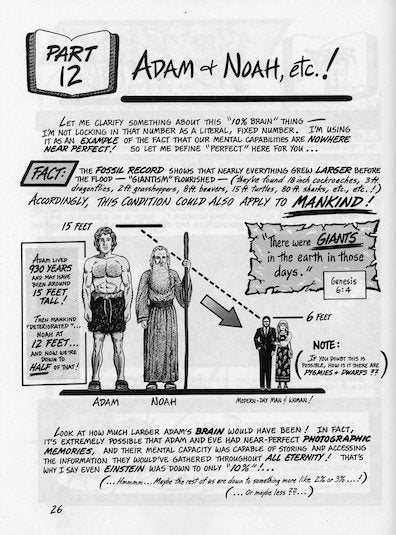 PART
12
ADAM & NOAH, etc.!
LET ME CLARIFY SOMETHING ABOUT THIS "10% BRAIN" THING —
I'M NOT LOCKING IN THAT NUMBER AS A LITERAL, FIXED NUMBER. I'M USING
IT AS AN EXAMPLE OF THE FACT THAT OUR MENTAL CAPABILITIES ARE NOWHERE
NEAR PERFECT! SO LET ME DEFINE "PERFECT" HERE FOR YOU...
FACT: THE FOSSIL RECORD SHOWS THAT NEARLY EVERYTHING GREW LARGER BEFORE
THE FLOOD — "GIANTISM" FLOURISHED — (they've found 18 inch cockroaches, 3 ft.
dragonflies, 2 ft. grasshoppers, 8 ft. beavers, 15 ft. turtles, 80 ft. sharks, etc., etc.!)
ACCORDINGLY, THIS CONDITION COULD ALSO APPLY TO MANKIND!
15 FEET
ADAM LIVED
930 YEARS
AND MAY HAVE
BEEN AROUND
15 FEET
TALL!
THEN MANKIND
"DETERIORATED"...
NOAH AT
12 FEET...
AND NOW WE'RE
DOWN TO
HALF OF THAT!
"There were GIANTS
in the earth in those
days."
Genesis
6:4
6 FEET
NOTE:
(IF YOU DOUBT THIS IS
POSSIBLE, HOW IS IT THERE ARE
PYGMIES & DWARFS ??)
ADAM
NOAH
MODERN-DAY MAN & WOMAN!
LOOK AT HOW MUCH LARGER ADAM'S BRAIN WOULD HAVE BEEN! IN FACT,
IT'S EXTREMELY POSSIBLE THAT ADAM AND EVE HAD NEAR-PERFECT PHOTOGRAPHIC
MEMORIES, AND THEIR MENTAL CAPACITY WAS CAPABLE OF STORING AND ACCESSING
THE INFORMATION THEY WOULD'VE GATHERED THROUGHOUT ALL ETERNITY! THAT'S
WHY I SAY EVEN EINSTEIN WAS DOWN TO ONLY "10%"!...
(...Hmmmm....Maybe the rest of us are down to something more like 2% or 3%....!)
(...Or maybe less ??...)
26